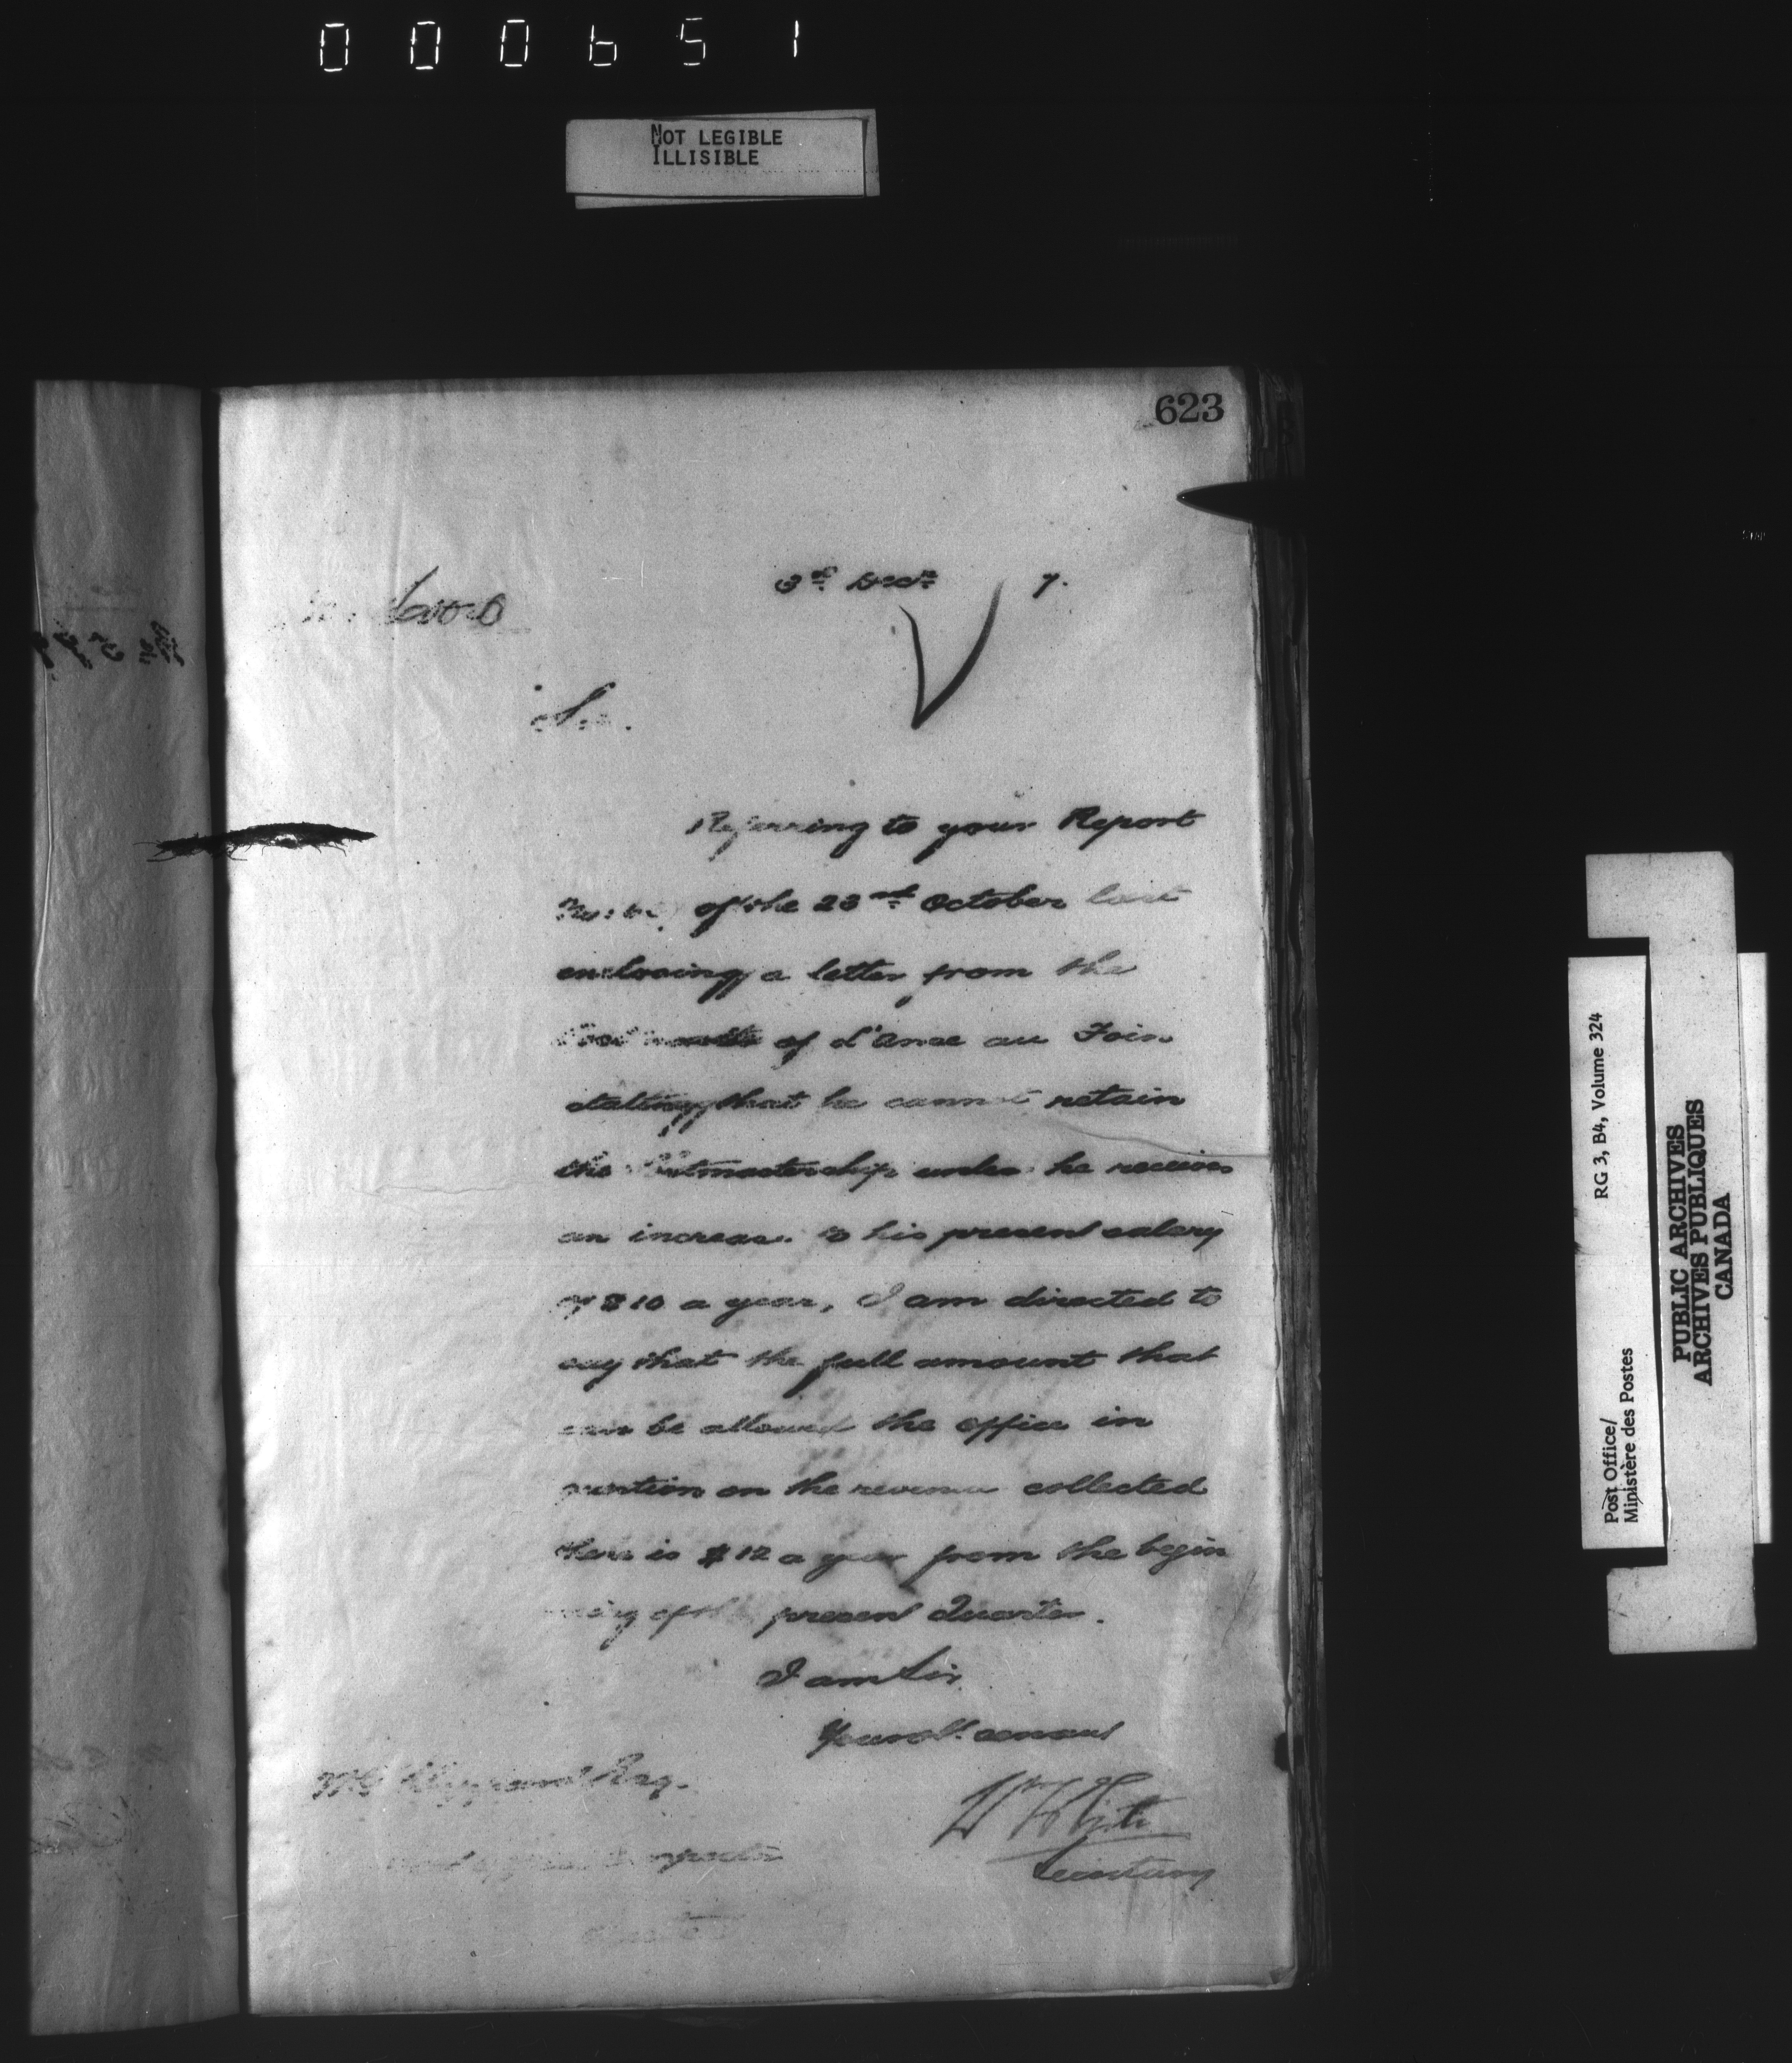 000651
NOT LEGIBLE
ILLISIBLE
623
3rd Decr 7.
Sir.
Referring to your Report
of the 23rd October last
enclosing a letter from the
Postmaster of L'Anse au Foin
stating that he cannot retain
the Postmastership unless he receives
an increase to his present salary
of $10 a year, I am directed to
say that the full amount that
can be allowed the office in
question on the revenue collected
there is $12 a year from the begin
ning of the present Quarter.
I am Sir
Your ob. servant
Wm White
Secretary
Esq.
Post office Inspector
RG 3, B4, Volume 324
Post Office/
Ministère des Postes
PUBLIC ARCHIVES
ARCHIVES PUBLIQUES
CANADA